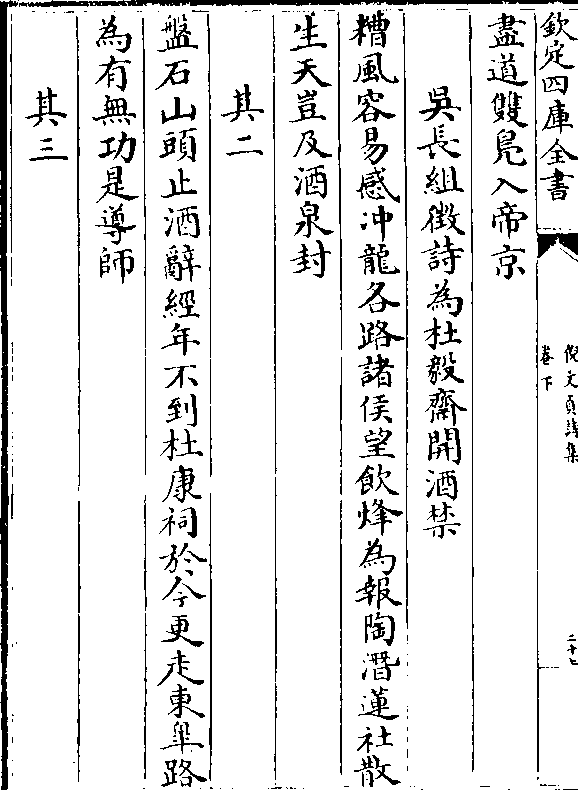 欽定四庫全書
倪文貞詩集
卷下
二十七
盡道雙鳬入帝京
吳長組徵詩為杜毅齋開酒禁
糟風容易感冲龍各路諸侯望飲烽為報陶潛蓮社散
生天豈及酒泉封
其二
盤石山頭止酒辭經年不到杜康祠於今更走東臯路
為有無功是導師
其三